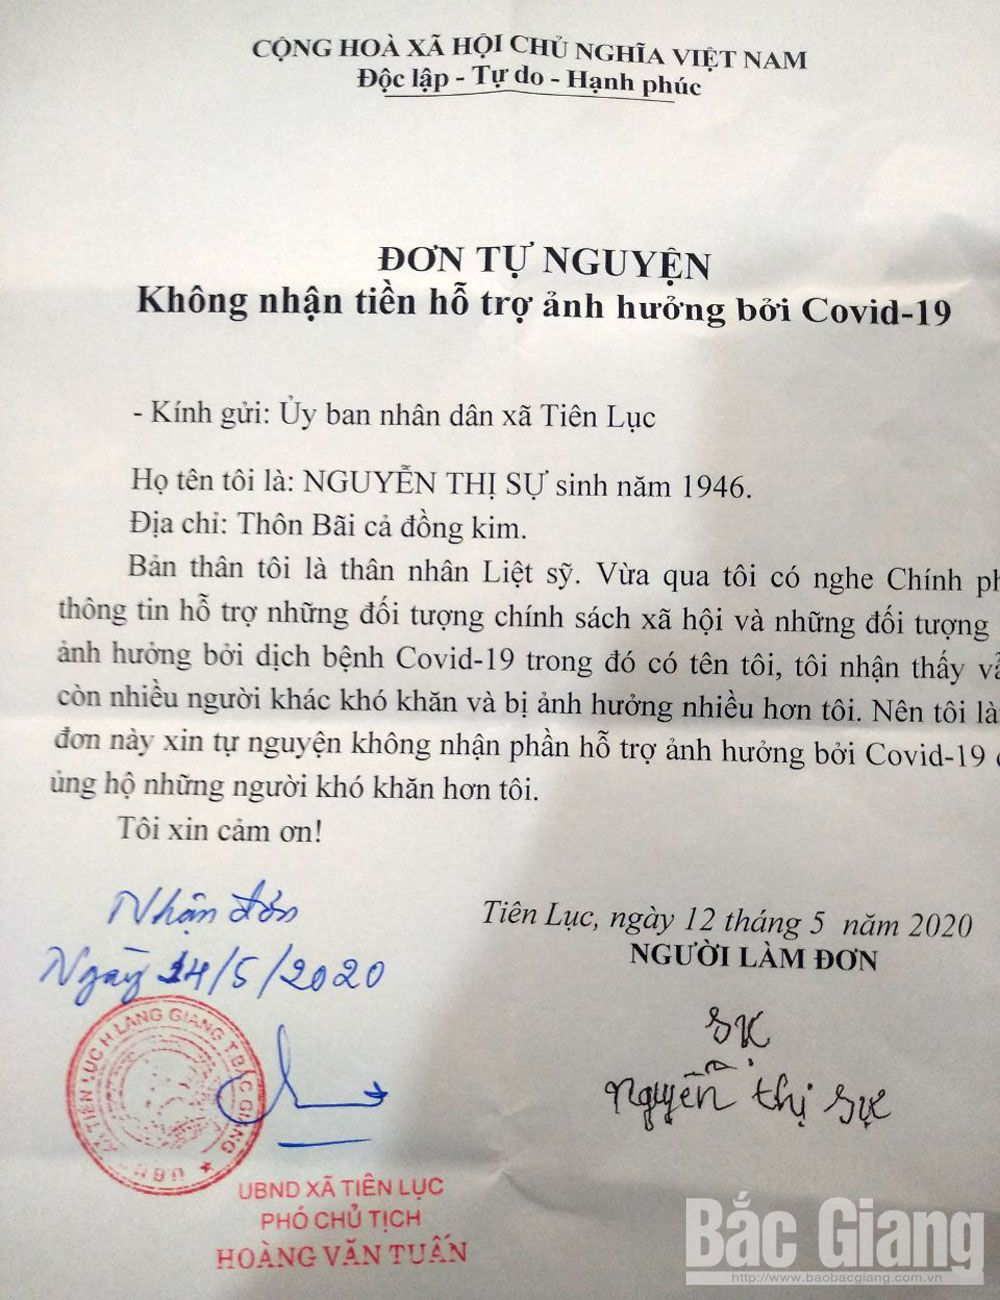 CỘNG HOÀ XÃ HỘI CHỦ NGHĨA VIỆT NAM
Độc lập - Tự do - Hạnh phúc
ĐƠN TỰ NGUYỆN
Không nhận tiền hỗ trợ ảnh hưởng bởi Covid-19
- Kính gửi: Ủy ban nhân dân xã Tiên Lục
Họ tên tôi là: NGUYỄN THỊ SỰ sinh năm 1946.
Địa chỉ: Thôn Bãi cả đồng kim.
Bản thân tôi là thân nhân Liệt sỹ. Vừa qua tôi có nghe Chính
thông tin hỗ trợ những đối tượng chính sách xã hội và những đối tượng
ảnh hưởng bởi dịch bệnh Covid-19 trong đó có tên tôi, tôi nhận thấy
còn nhiều người khác khó khăn và bị ảnh hưởng nhiều hơn tôi. Nên tôi
đơn này xin tự nguyện không nhận phần hỗ trợ ảnh hưởng bởi Covid-19
ủng hộ những người khó khăn hơn tôi.
Tôi xin cảm ơn!
Nhận đơn
Ngày 14/5/2020
Tiên Lục, ngày 12 tháng 5 năm 2020
NGƯỜI LÀM ĐƠN
Sự
Nguyễn thị Sự
TIÊN LỤC H.LẠNG GIANG T.BẮC GIANG
UBND XÃ TIÊN LỤC
PHÓ CHỦ TỊCH
HOÀNG VĂN TUẤN
Bắc Giang
http://www.baobacgiang.com.vn